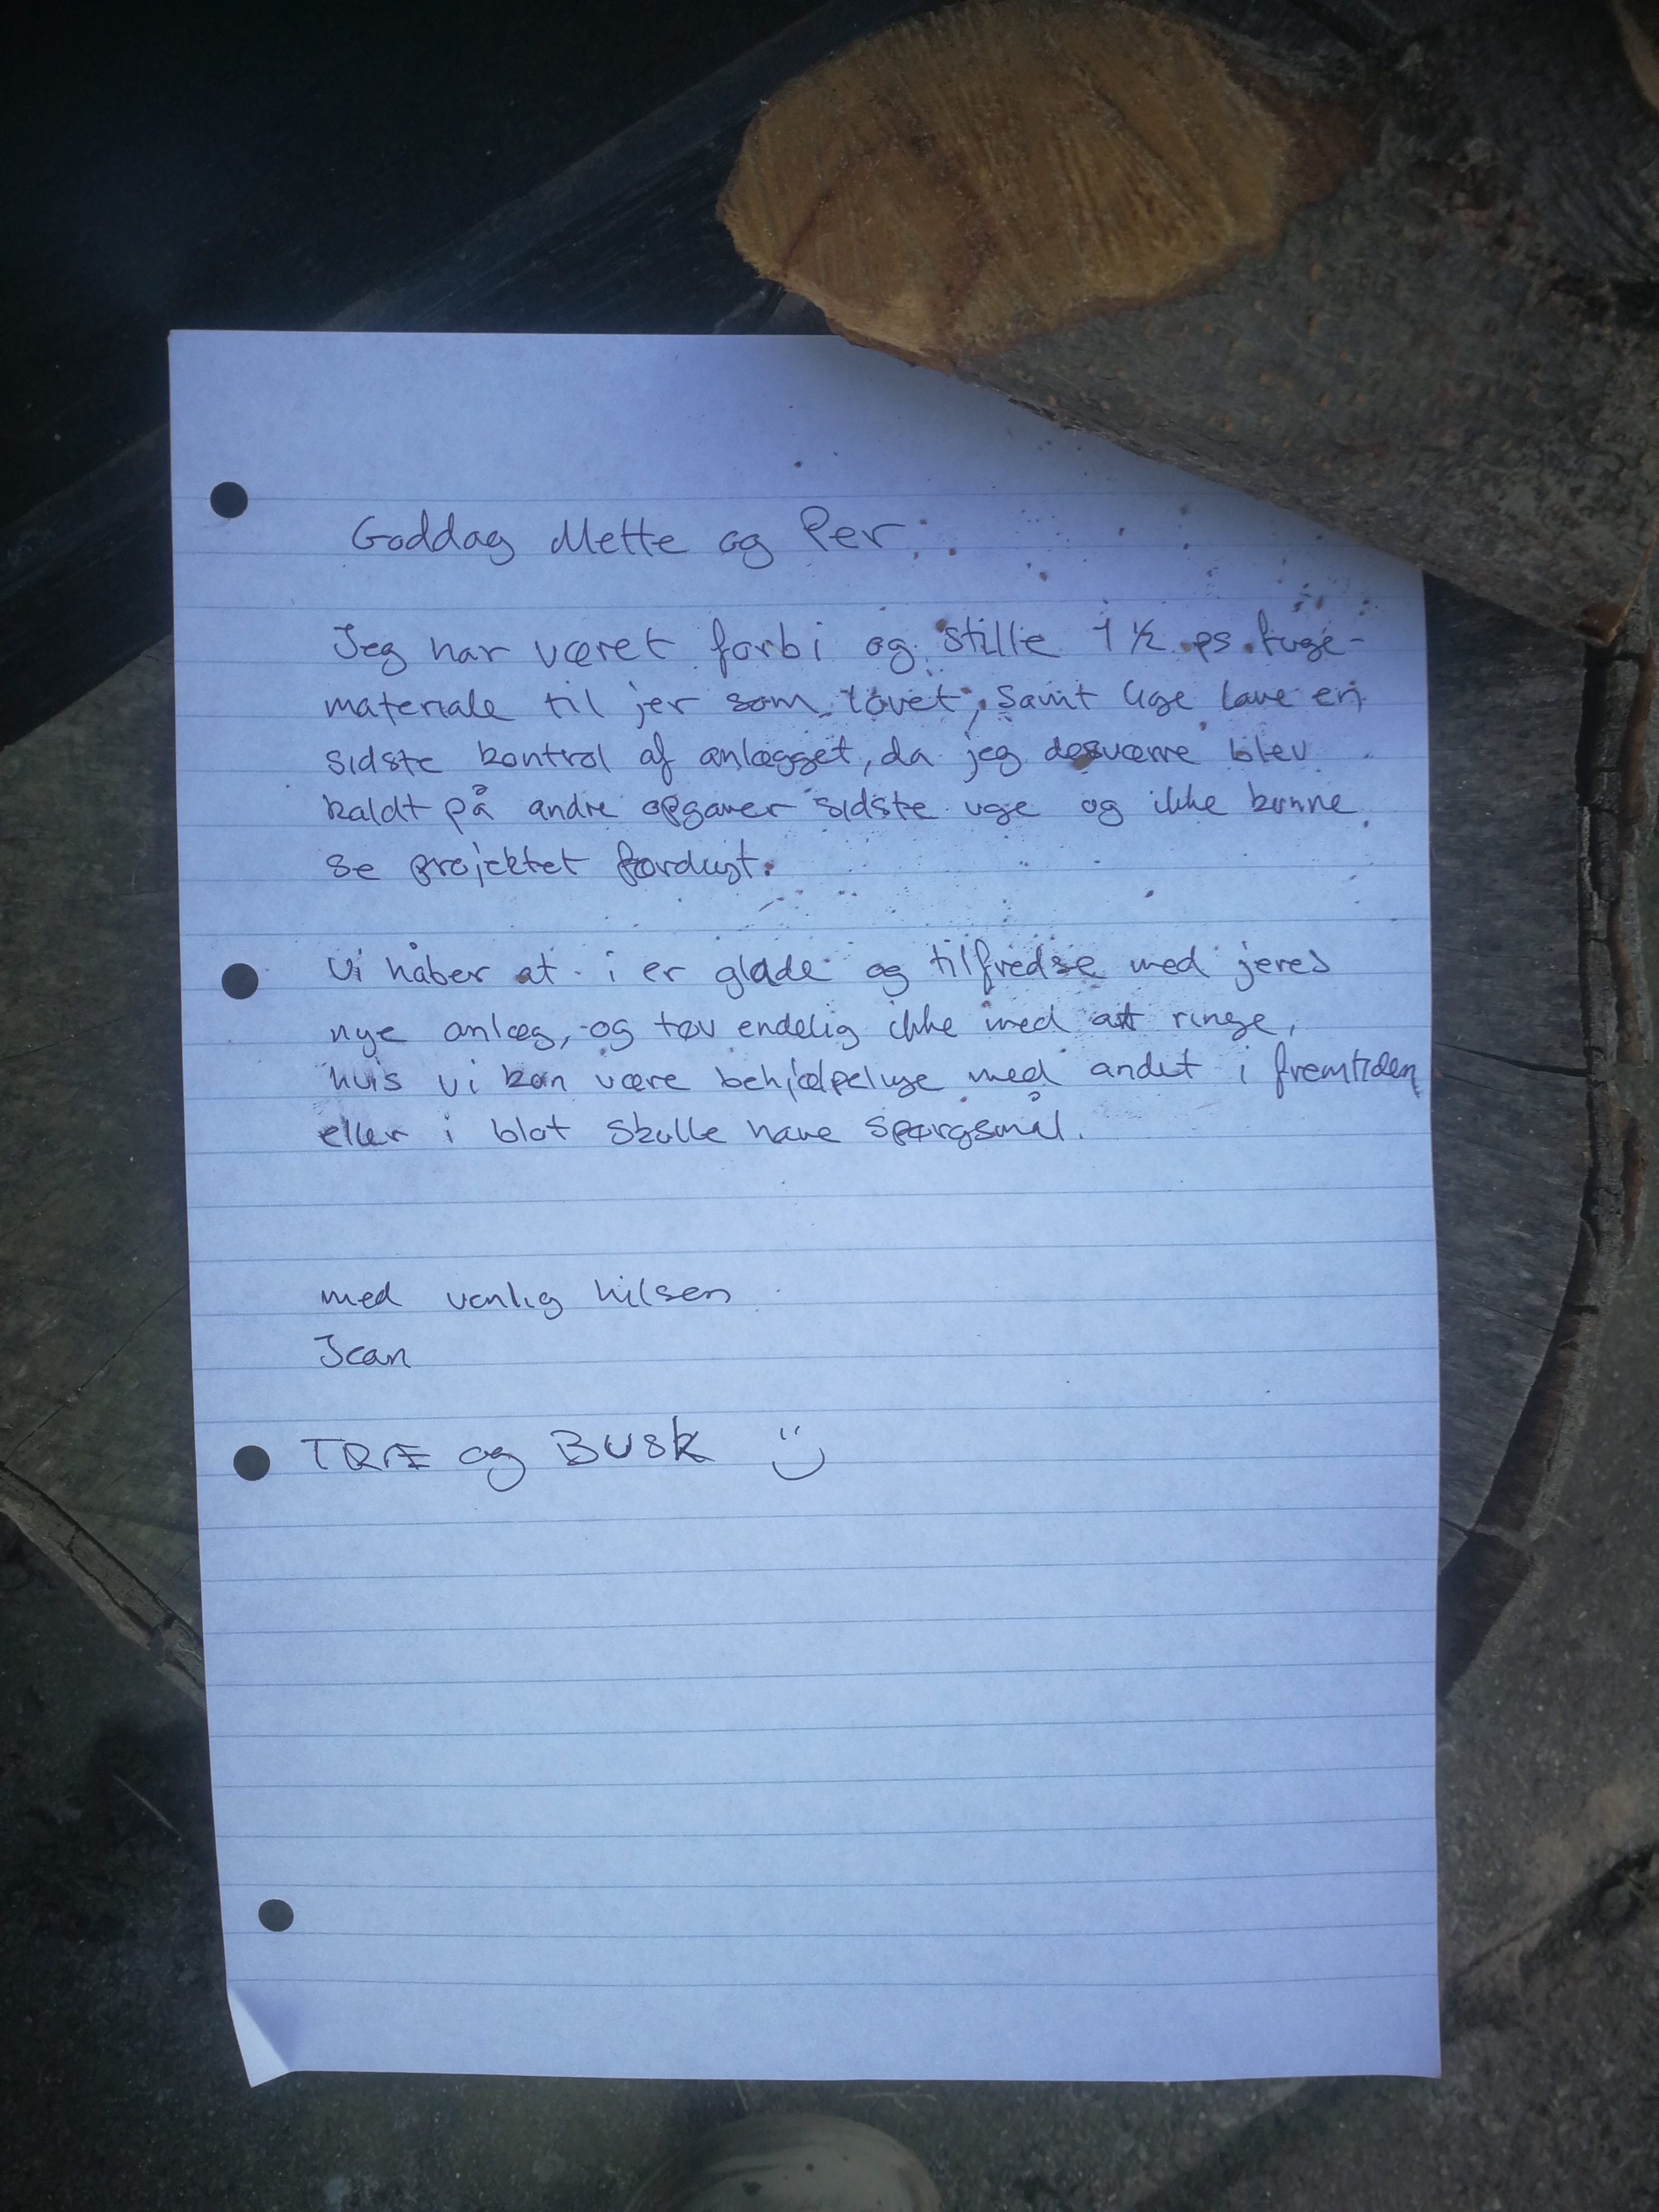 Goddag Mette og Per.
Jeg har været forbi og stille 1 ½ ps. fuge-
materiale til jer som lovet, samt lige lave en
sidste kontrol af anlægget, da jeg desværre blev
kaldt på andre opgaver sidste uge og ikke kunne
se projektet færdigt.
Vi håber at i er glade og tilfredse med jeres
nye anlæg, og tøv endelig ikke med at ringe,
hvis vi kan være behjælpelige med andet i fremtiden
eller i blot skulle have spørgsmål.
med venlig hilsen
Jean
TRÆ og BUSK